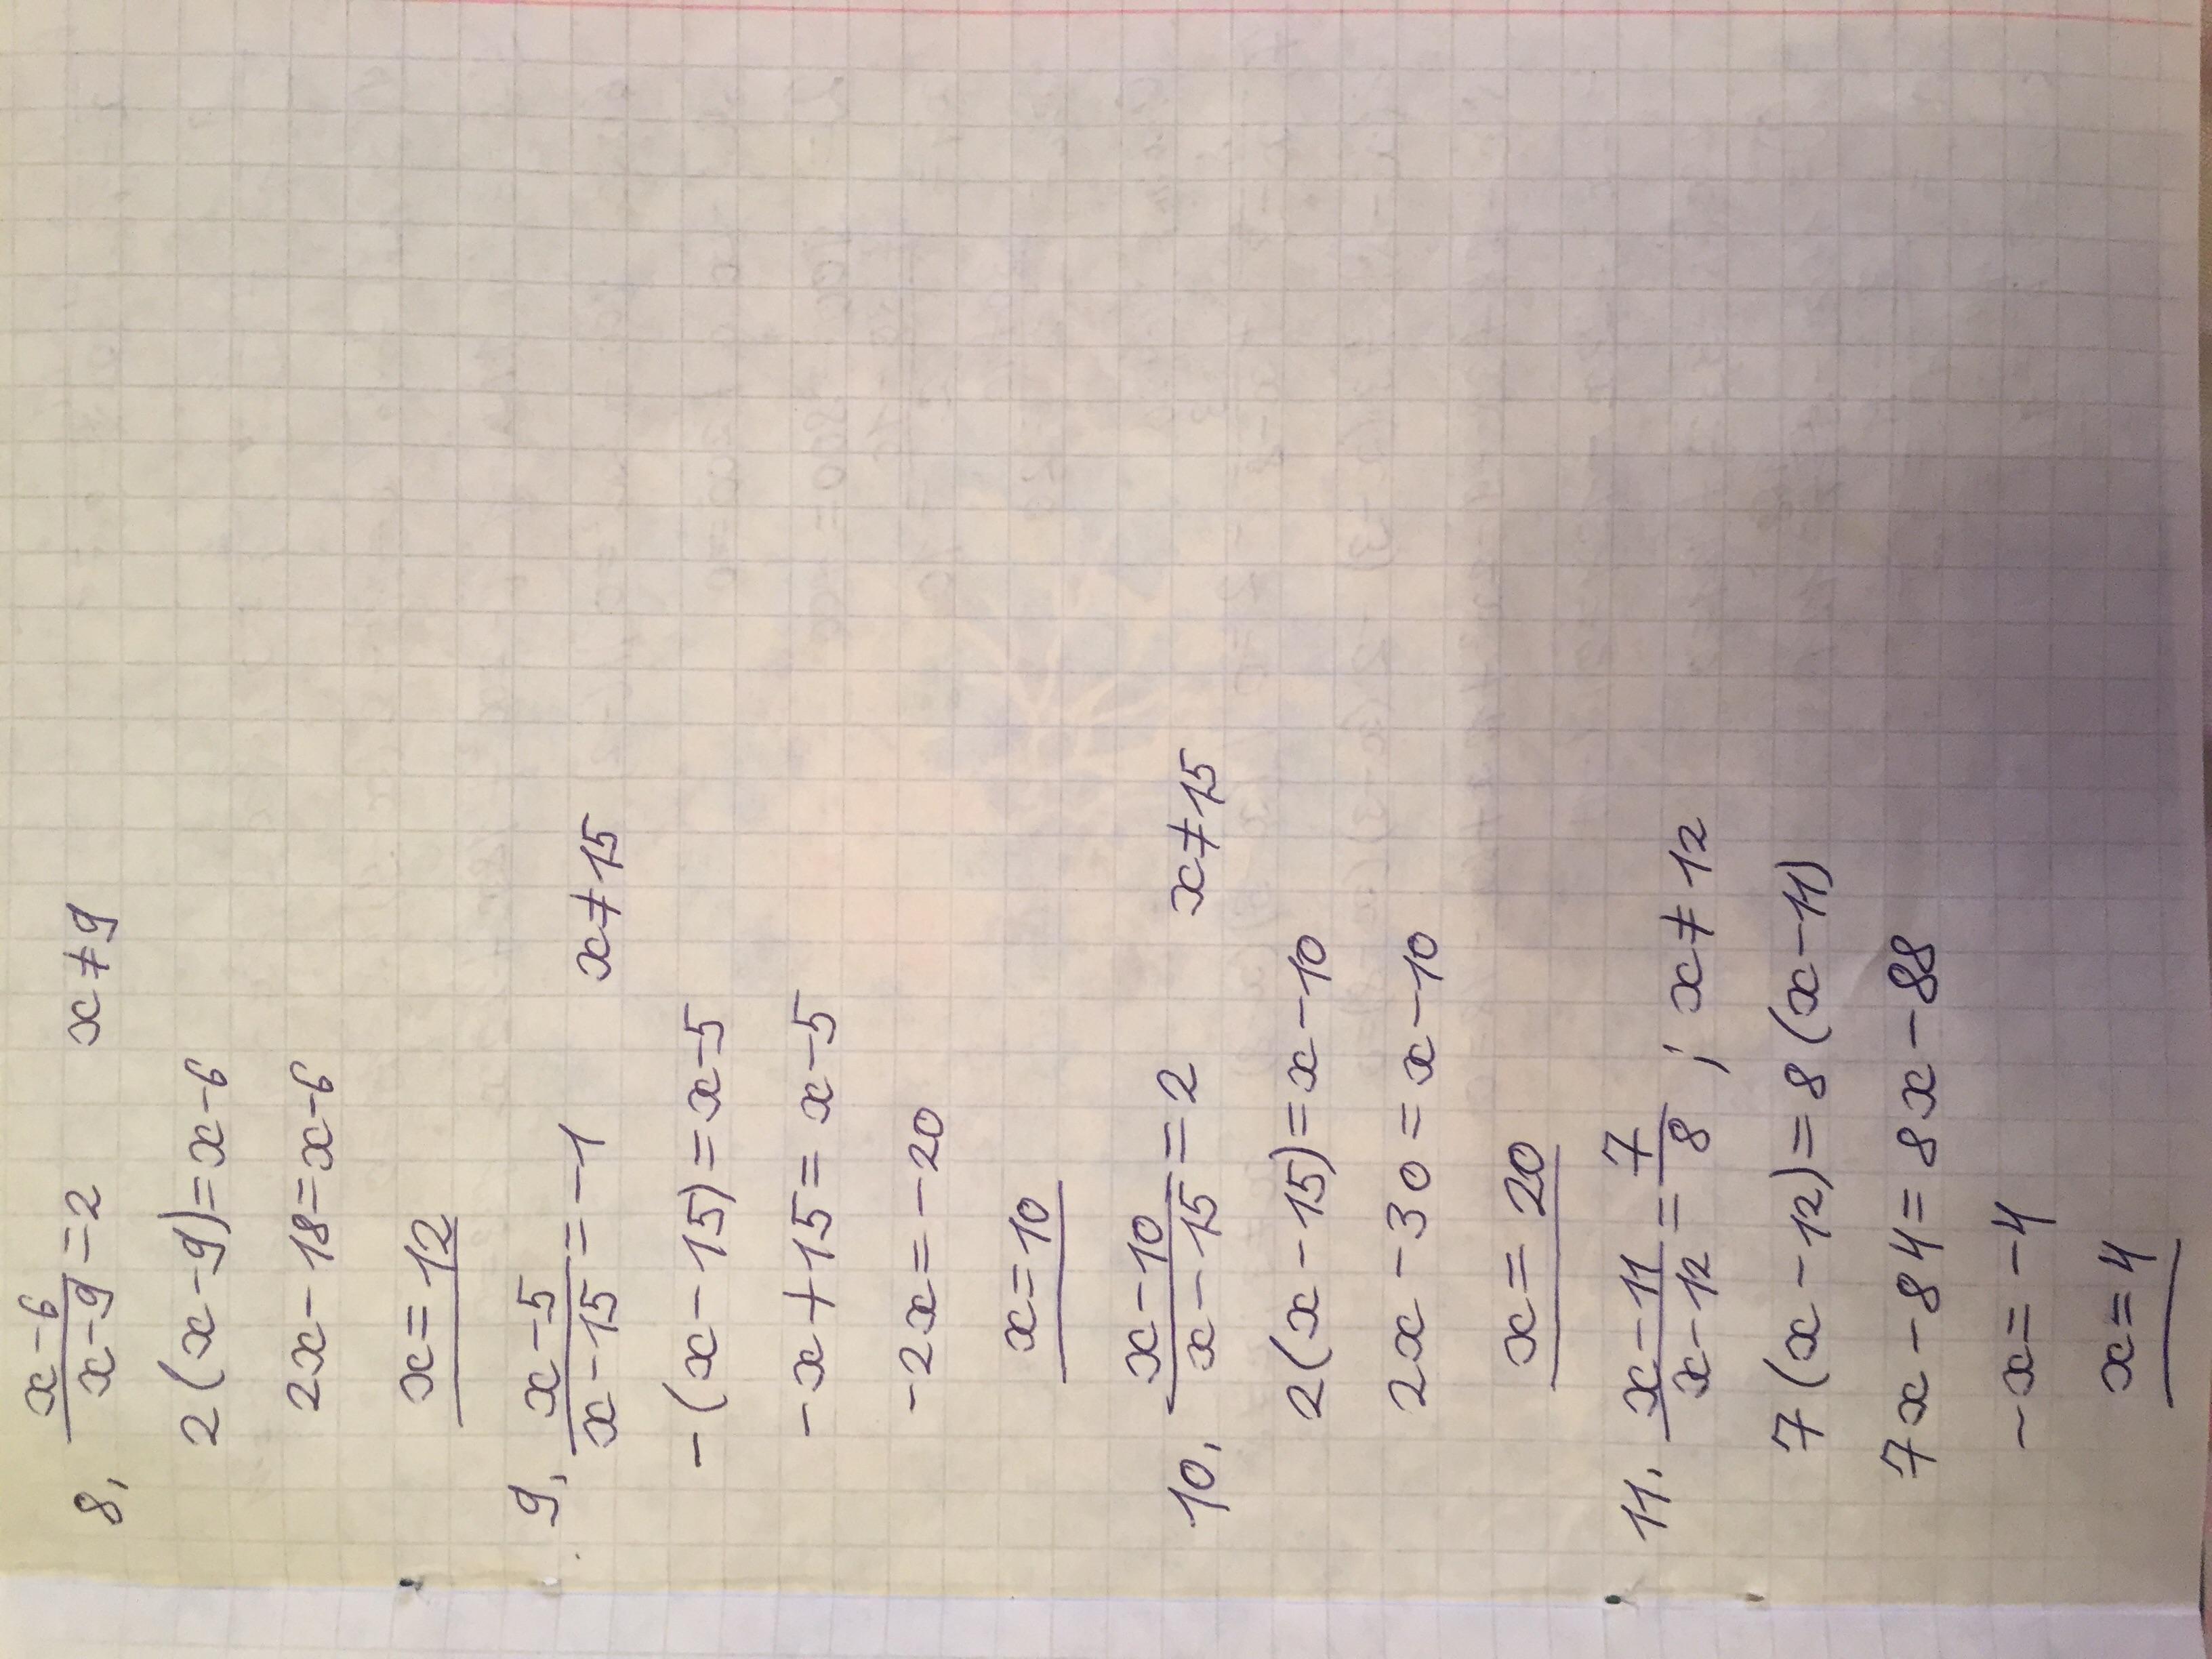 8, x-6/x-9 = 2 x≠9
2(x-9)=x-6
2x-18=x-6
x=12
9, x-5/x-15 = -1 x≠15
-(x-15)=x-5
-x+15=x-5
-2x=-20
x=10
10, x-10/x-15 = 2 x≠15
2(x-15)=x-10
2x-30=x-10
x=20
11. x-11/x-12 = 7/8 ; x≠12
7(x-12)=8(x-11)
7x-84=8x-88
-x=-4
x=4